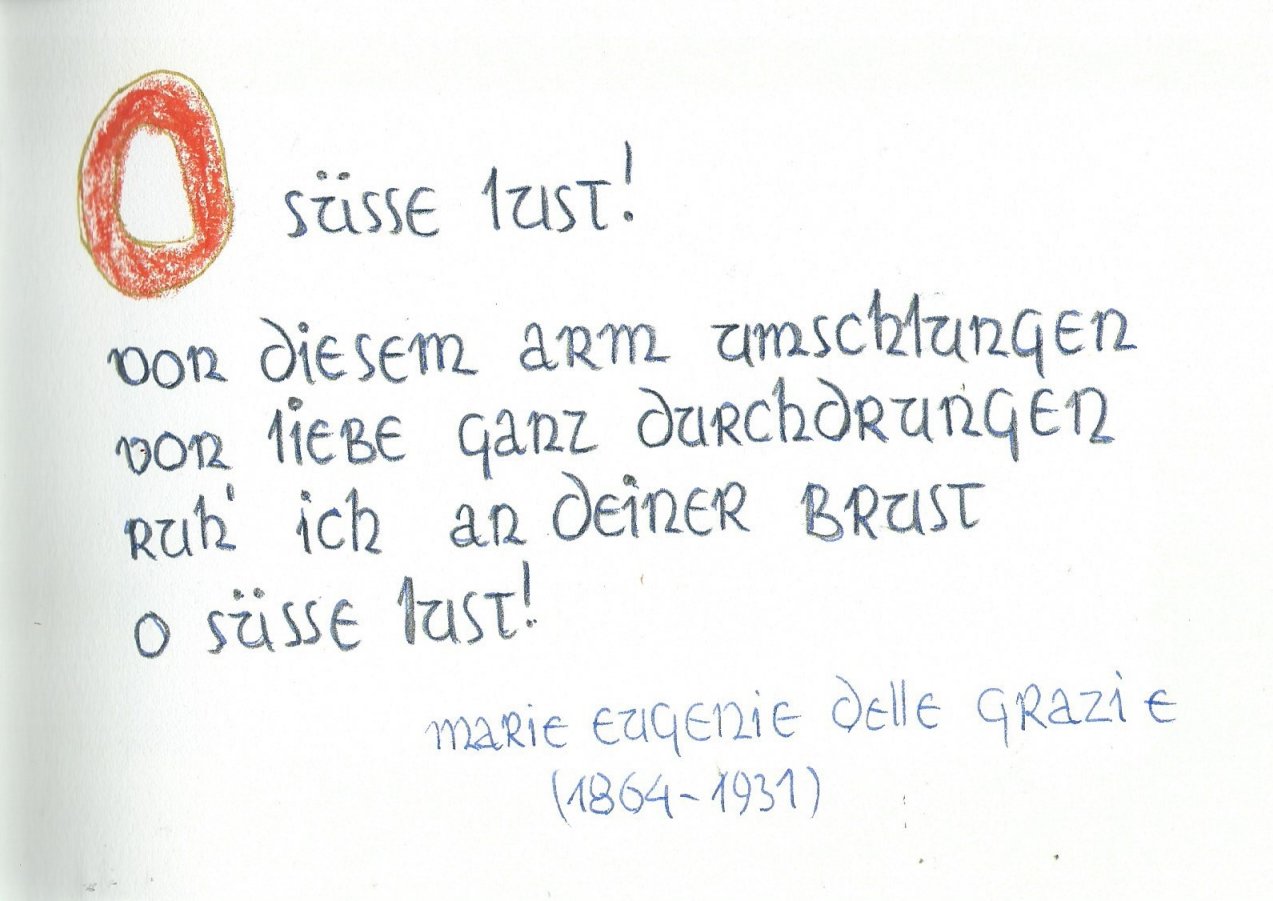 O süsse lust!
von diesem arm umschlungen
von liebe ganz durchdrungen
ruh' ich an deiner Brust
o süsse lust!
marie eugenie delle grazie
(1864-1931)